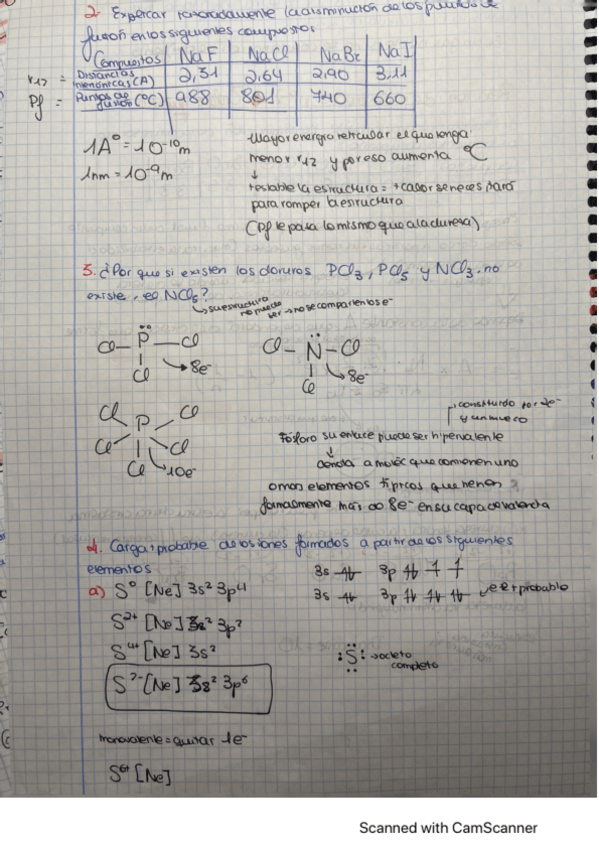 2. Explicar razonadamente la disminución de los puntos de
fusión en los siguientes compuestos
Compuestos | NaF | NaCl | NaBr | NaI
r12 = Distancias interiónicas (A) | 2,31 | 2,64 | 2,90 | 3,11
Pf = Puntos de fusión (ºC) | 988 | 801 | 740 | 660
1Aº = 10⁻¹⁰ m
1nm = 10⁻⁹ m
Mayor energía reticular el que tenga
menor r12 y por eso aumenta ºC
↓
+ estable la estructura = + calor se necesitará
para romper la estructura
(Pf le pasa lo mismo que a la dureza)
3. ¿Por que si existen los cloruros PCl₃, PCl₅ y NCl₃, no
existe, el NCl₅?
↳ su estructura no puede ser → no se comparten los e⁻
Cl – P – Cl
Cl → 8e⁻
Cl – N – Cl
Cl → 8e⁻
Cl Cl
P
Cl Cl
Cl → 10e⁻
constituido por
y un
Fósforo su enlace puede ser hipervalente
↓
a moléc que contienen uno
o mas elementos típicos que tienen
formalmente más de 8e⁻ en su capa de valencia
4. Carga + probable de los iones formados a partir de los siguientes
elementos
3s ⥮ 3p ⥮ ↿ ↿
a) S⁰ [Ne] 3s² 3p⁴
3s ⥮ 3p ⥮ ⥮ ⥮ el + probable
S²⁺ [Ne] 3s² 3p²
S⁴⁺ [Ne] 3s²
:S: → octeto
completo
S²⁻ [Ne] 3s² 3p⁶
monovalente = quitar 1e⁻
S⁶⁺ [Ne]
Scanned with CamScanner